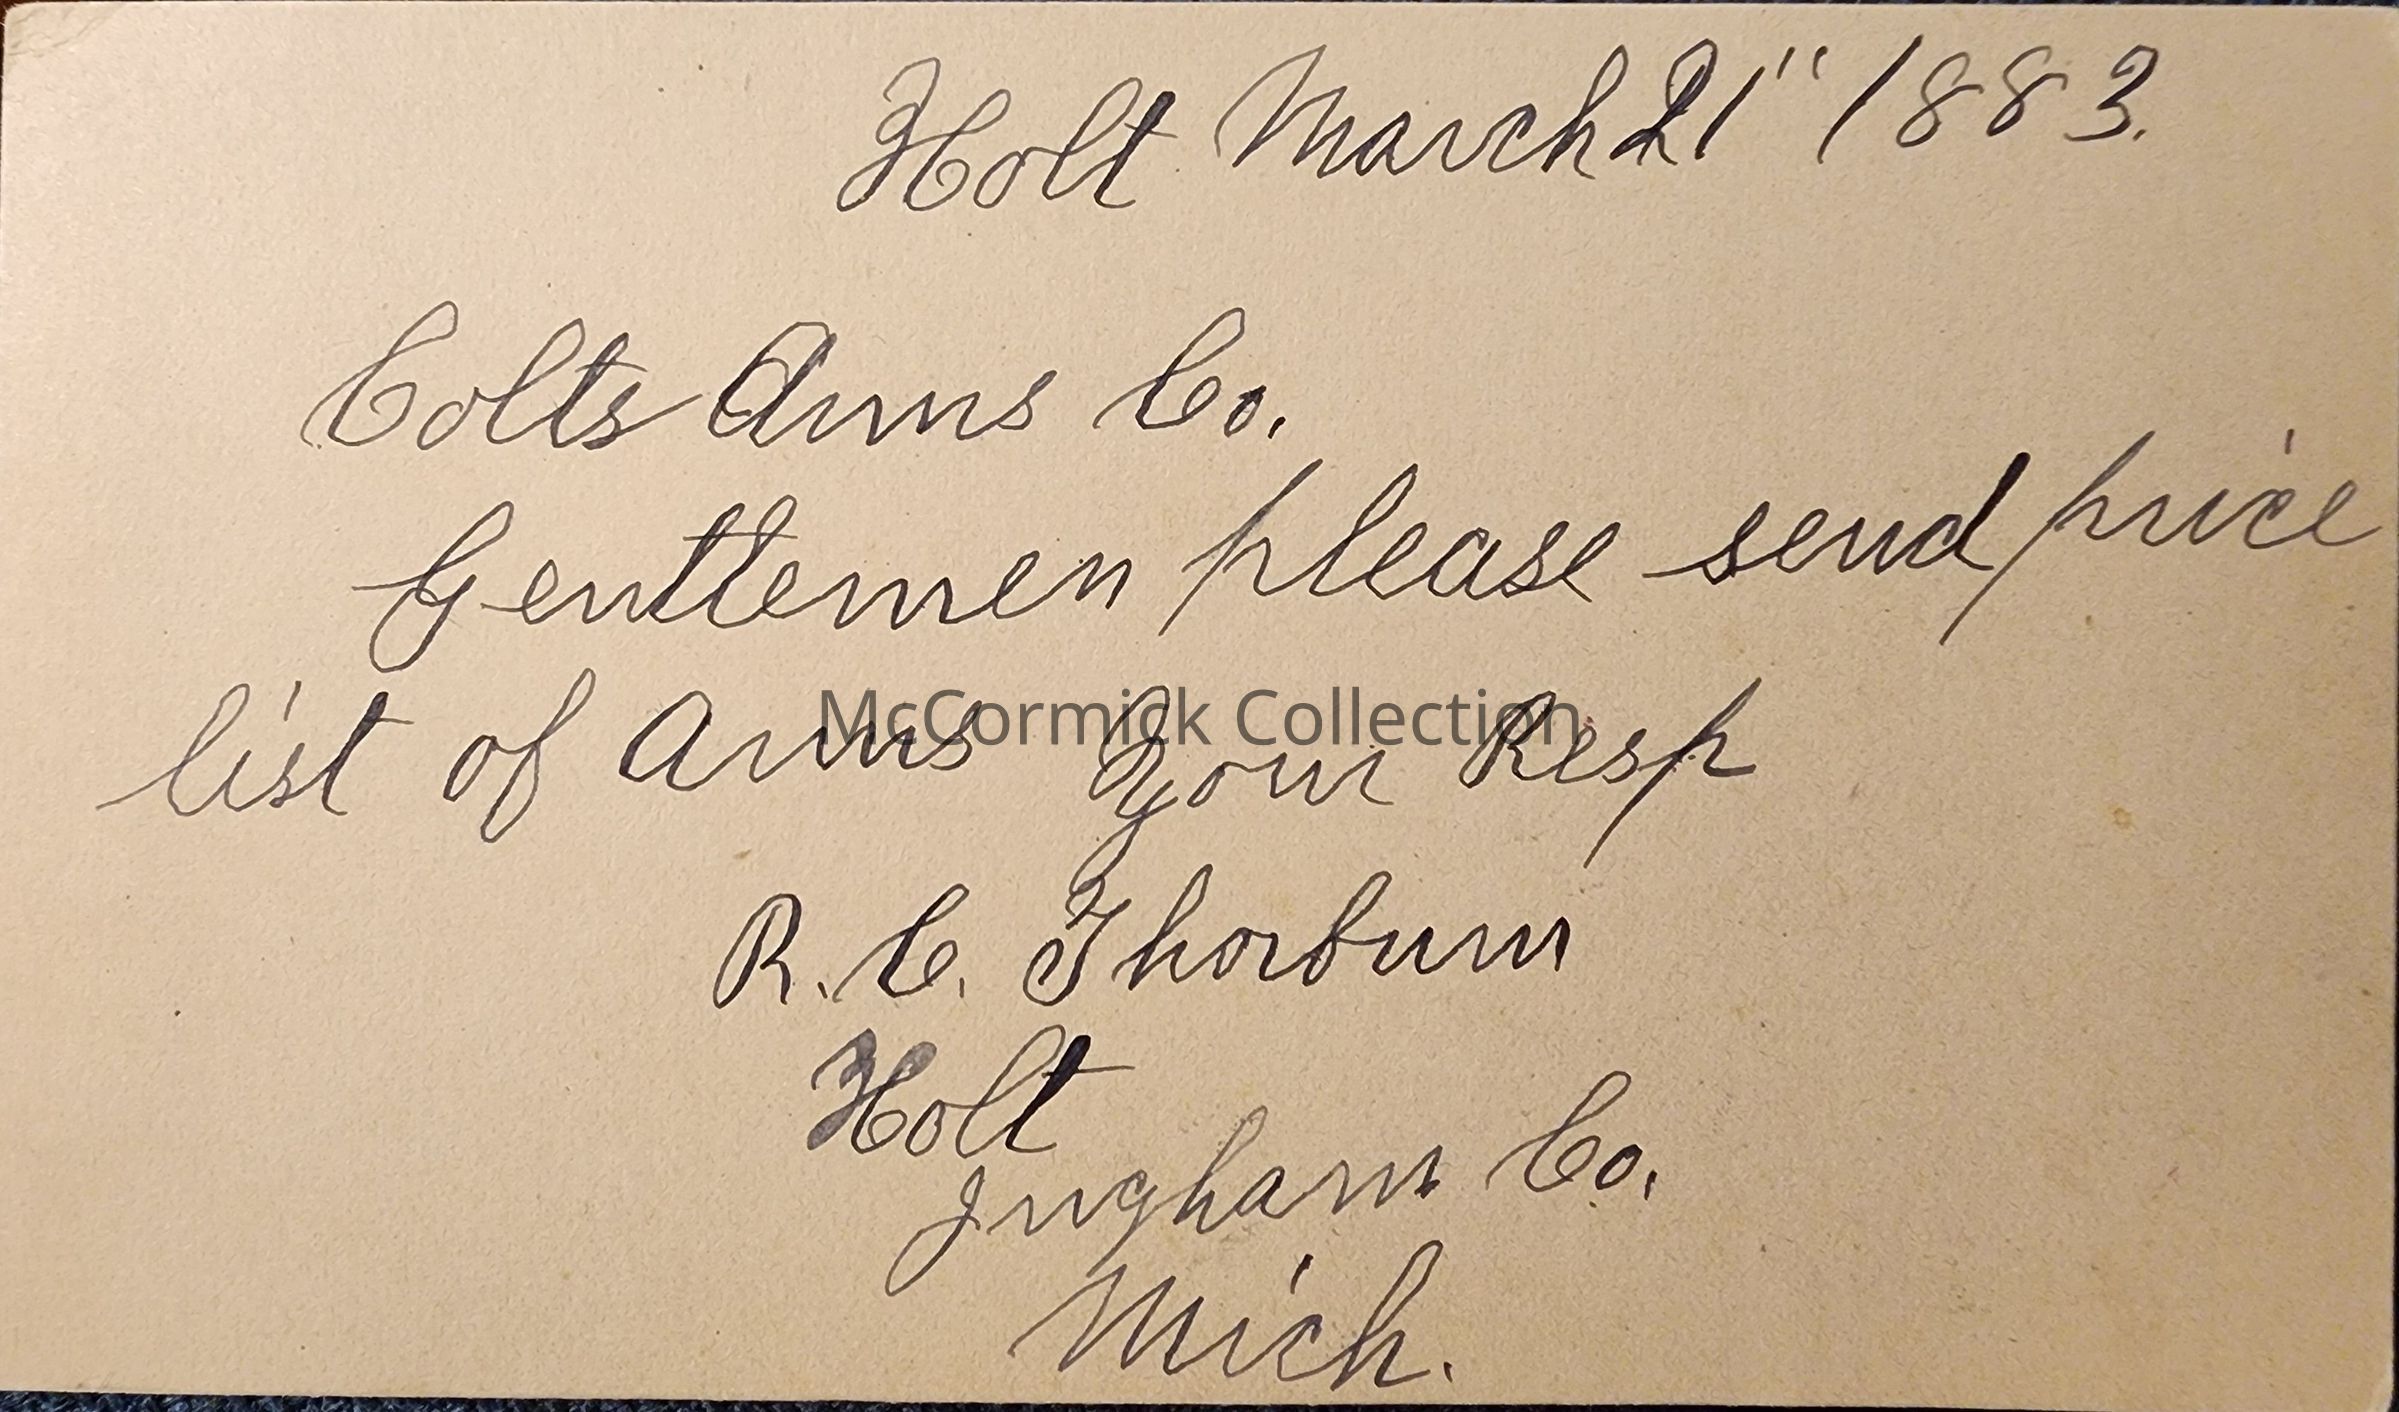 Holt March 21" 1883.
Colts Arms Co.
Gentlemen please send price
list of Arms Your Resp
McCormick Collection
R. C. Thorburn
Holt
Ingham Co.
Mich.